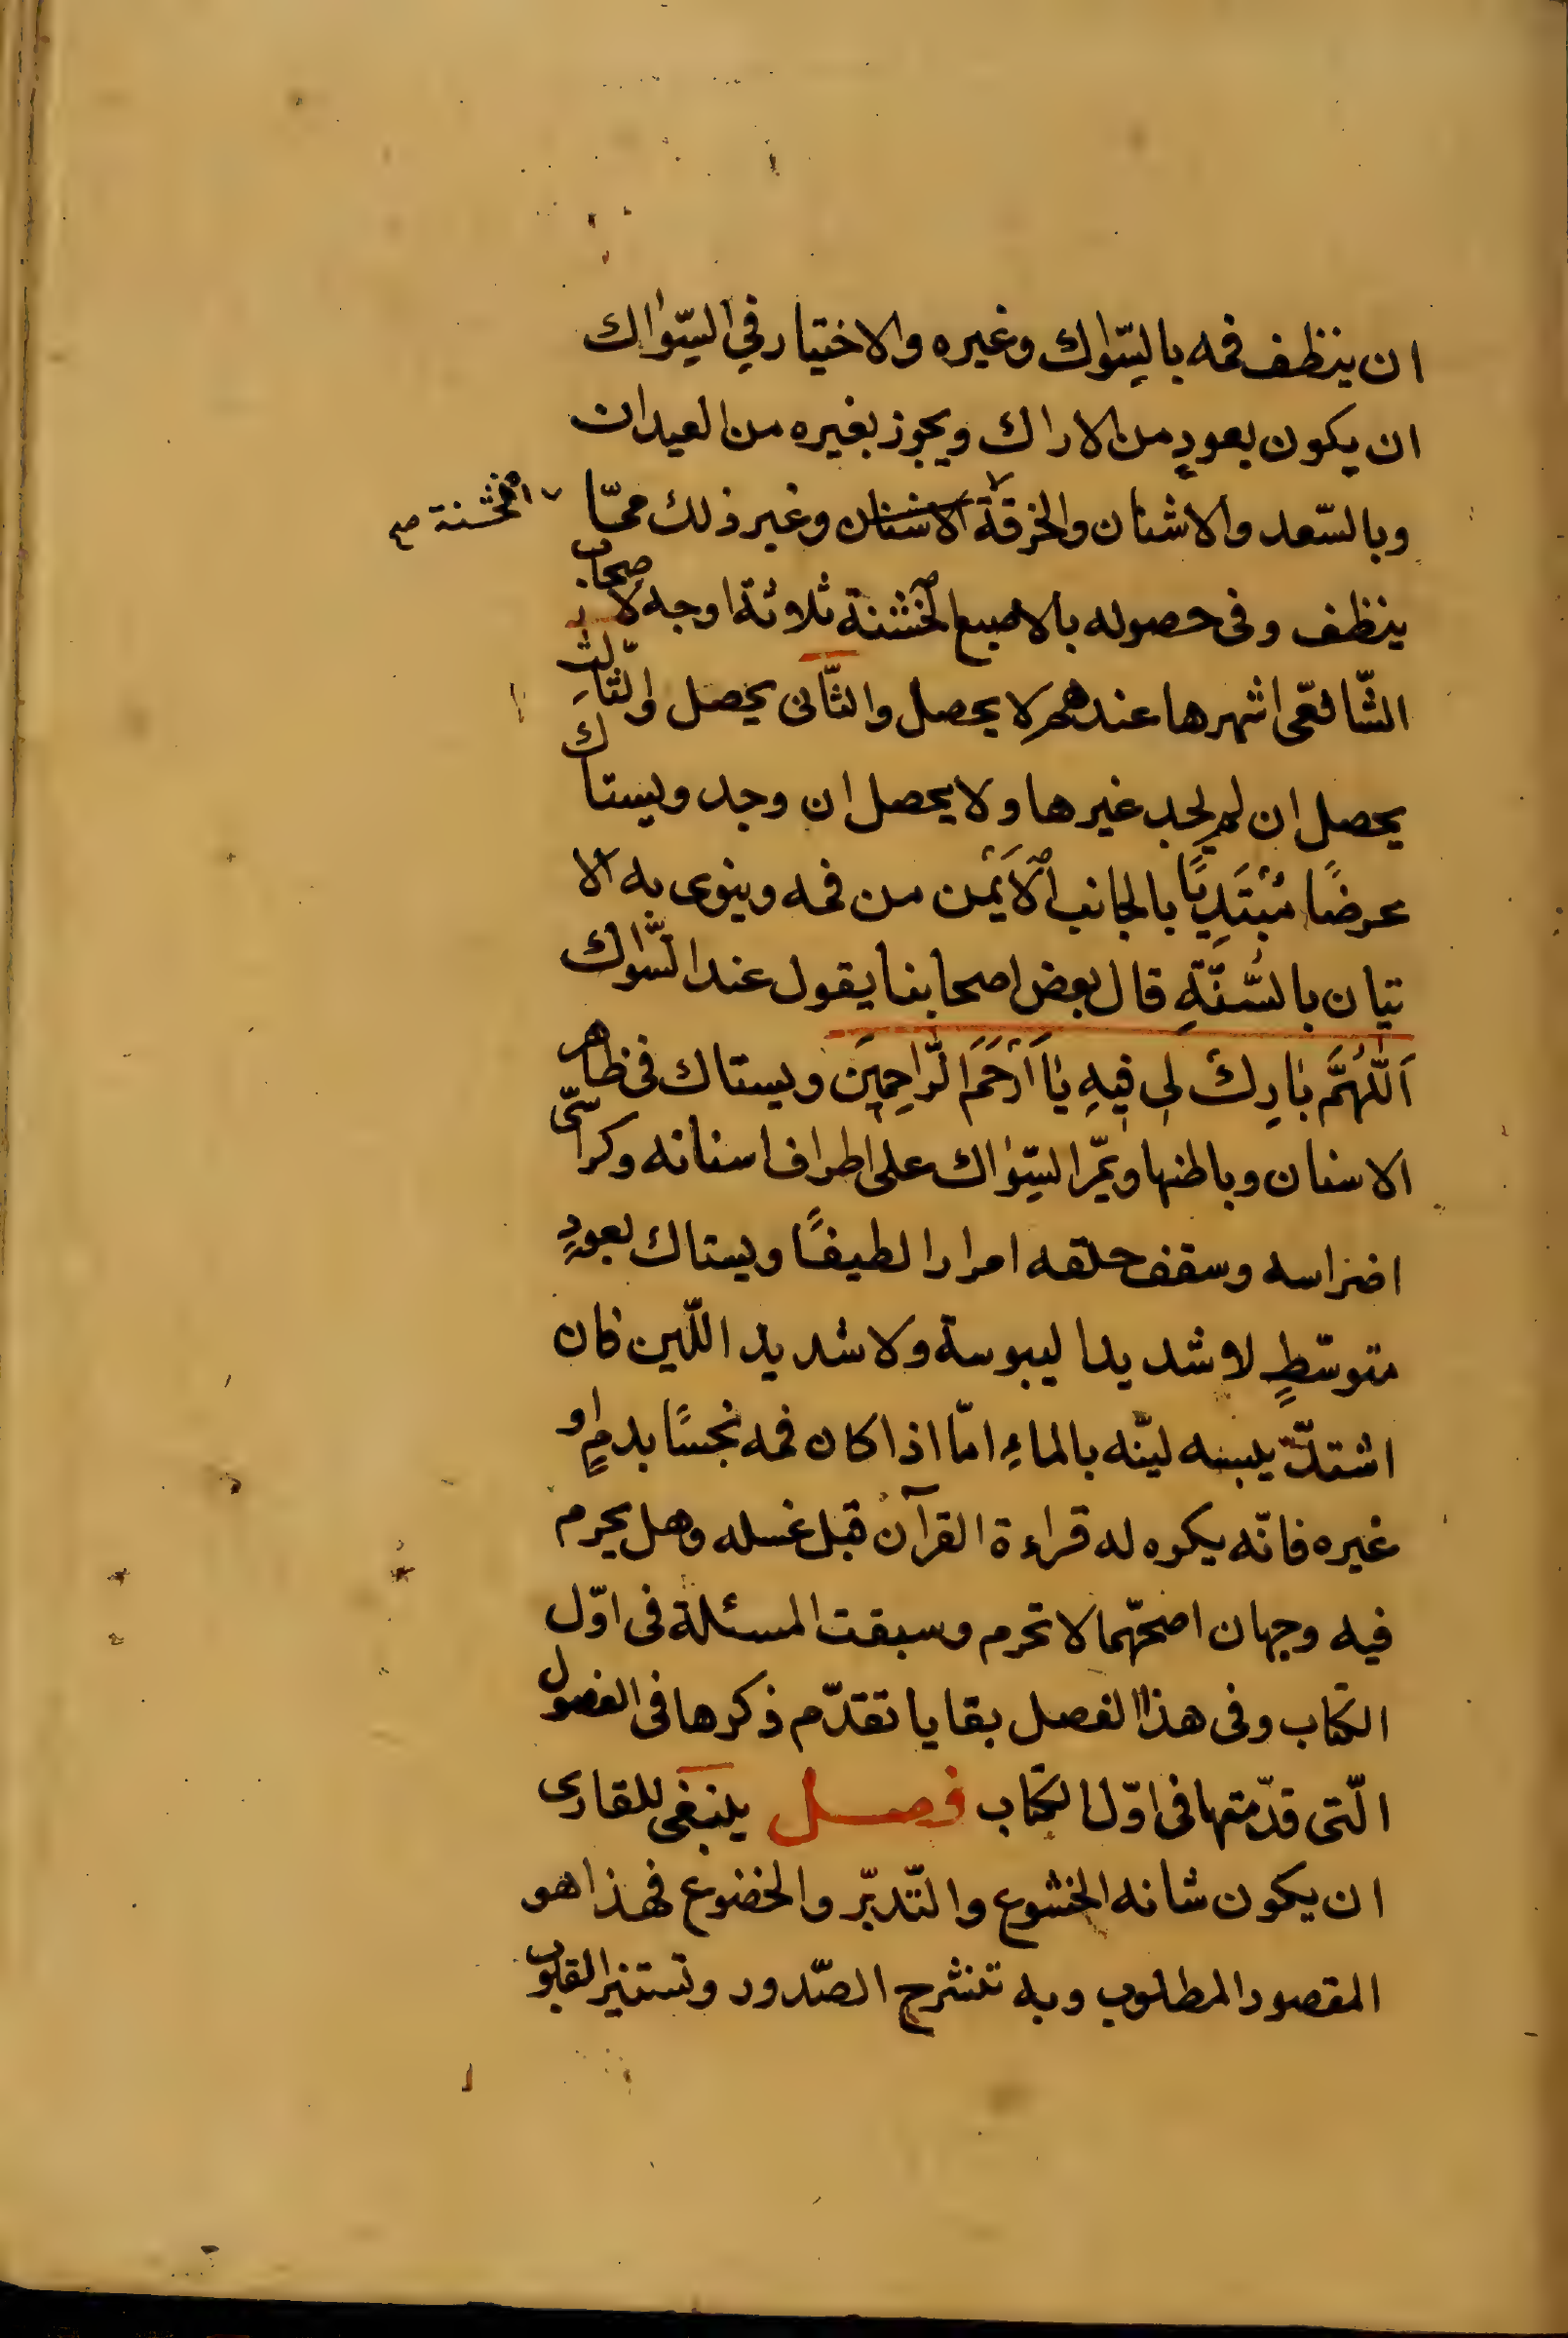 ان ينظف فمه بالسِّوٰاك وغيره والاختيار في السِّوٰاك
ان يكون بعودٍ من الاراك ويجوز بغيره من العيدان
وبالسّعد والاشنان والخرقة الاشنان وغير ذلك ممّا
الخشنة صح
ينظف وفى حصوله بالاصبع الخشنة ثلاثة اوجه لاصحاب
الشّافعّى اشهرها عندهم لا يحصل والثّانى يحصل والثّالِث
يحصل ان لم يجد غيرها ولا يحصل ان وجد ويستاك
عرضًا مُبْتَدِيًا بالجانب الْاَيْمَن من فمه وينوى به الا
تيان بالسُّنّةِ قال بعض اصحابنا يقول عند السّواك
اَللّٰهُمَّ بٰارِكْ لى فيهِ يٰا اَرْحَمَ الرّٰاحِمِينَ ويستاك فى ظاهر
الاسنان وباطنها ويمّر السِّوٰاك على اطراف اسنانه وكراسّى
اضراسه وسقف حلقه امرارا لطيفًا ويستاك بعودٍ
متوسّطٍ لا شديدا ليبوسة ولا شديد اللّين فان
اشتدّ يبسه ليّنه بالماءِ امّا اذا كان فمه نجسًا بدمٍ او
غيره فانّه يكره له قراءة القرآن قبل غسله وهل يحرم
فيه وجهان اصحّهما لا تحرم وسبقت المسئلة فى اوّل
الكتاب وفى هذا الفصل بقايا تقدّم ذكرها فى الفصول
الّتى قدّمتها فى اوّل الكتاب فصل ينبغى للقارى
ان يكون شانه الخشوع والتّدبّر والخضوع فهذا هو
المقصود المطلوب وبه تنشرح الصّدور وتستنير القلوب